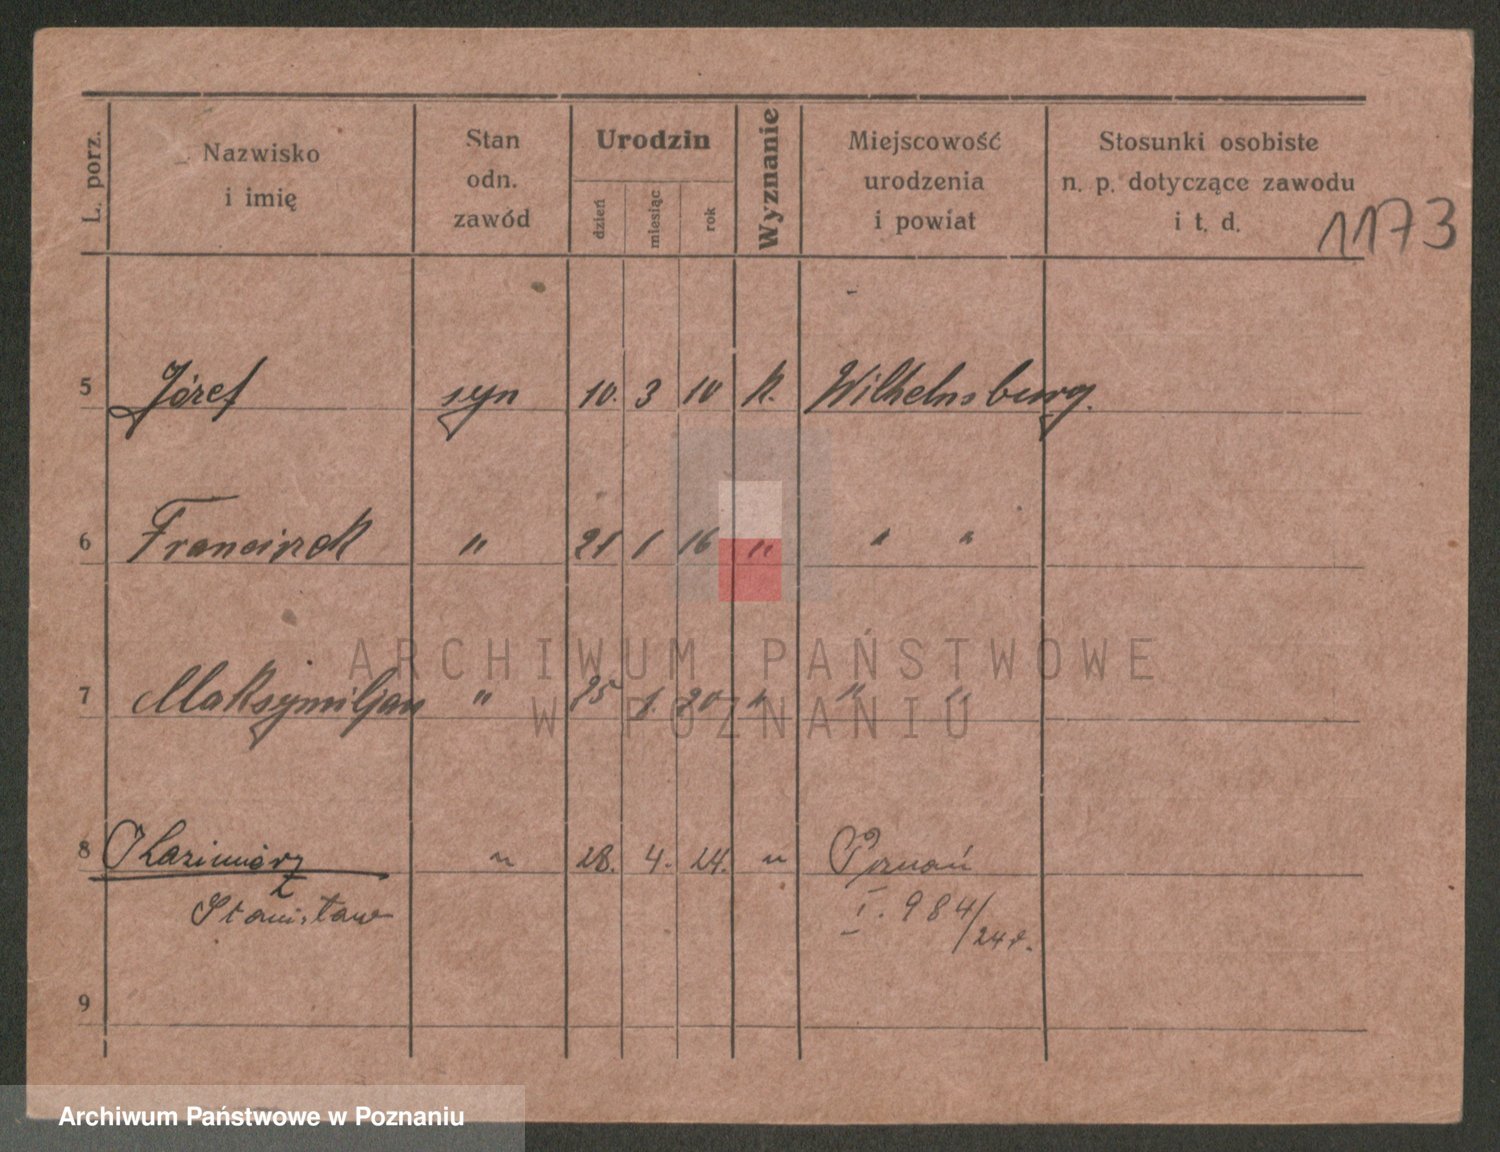 L. porz.
Nazwisko
i imię
Stan
odn.
zawód
Urodzin
dzień
miesiąc
rok
Wyznanie
Miejscowość
urodzenia
i powiat
Stosunki osobiste
n. p. dotyczące zawodu
i t. d.
1173
5 Józef syn 10. 3 10 k. Wilhelmsburg.
6 Franciszek " 21 1 16 " " "
7 Maksymiljan " 25 1. 20 " " "
8 Kazimierz " 28. 4. 24. " Poznań
Stanisław I. 984/24r.
9
ARCHIWUM PAŃSTWOWE
W POZNANIU
Archiwum Państwowe w Poznaniu